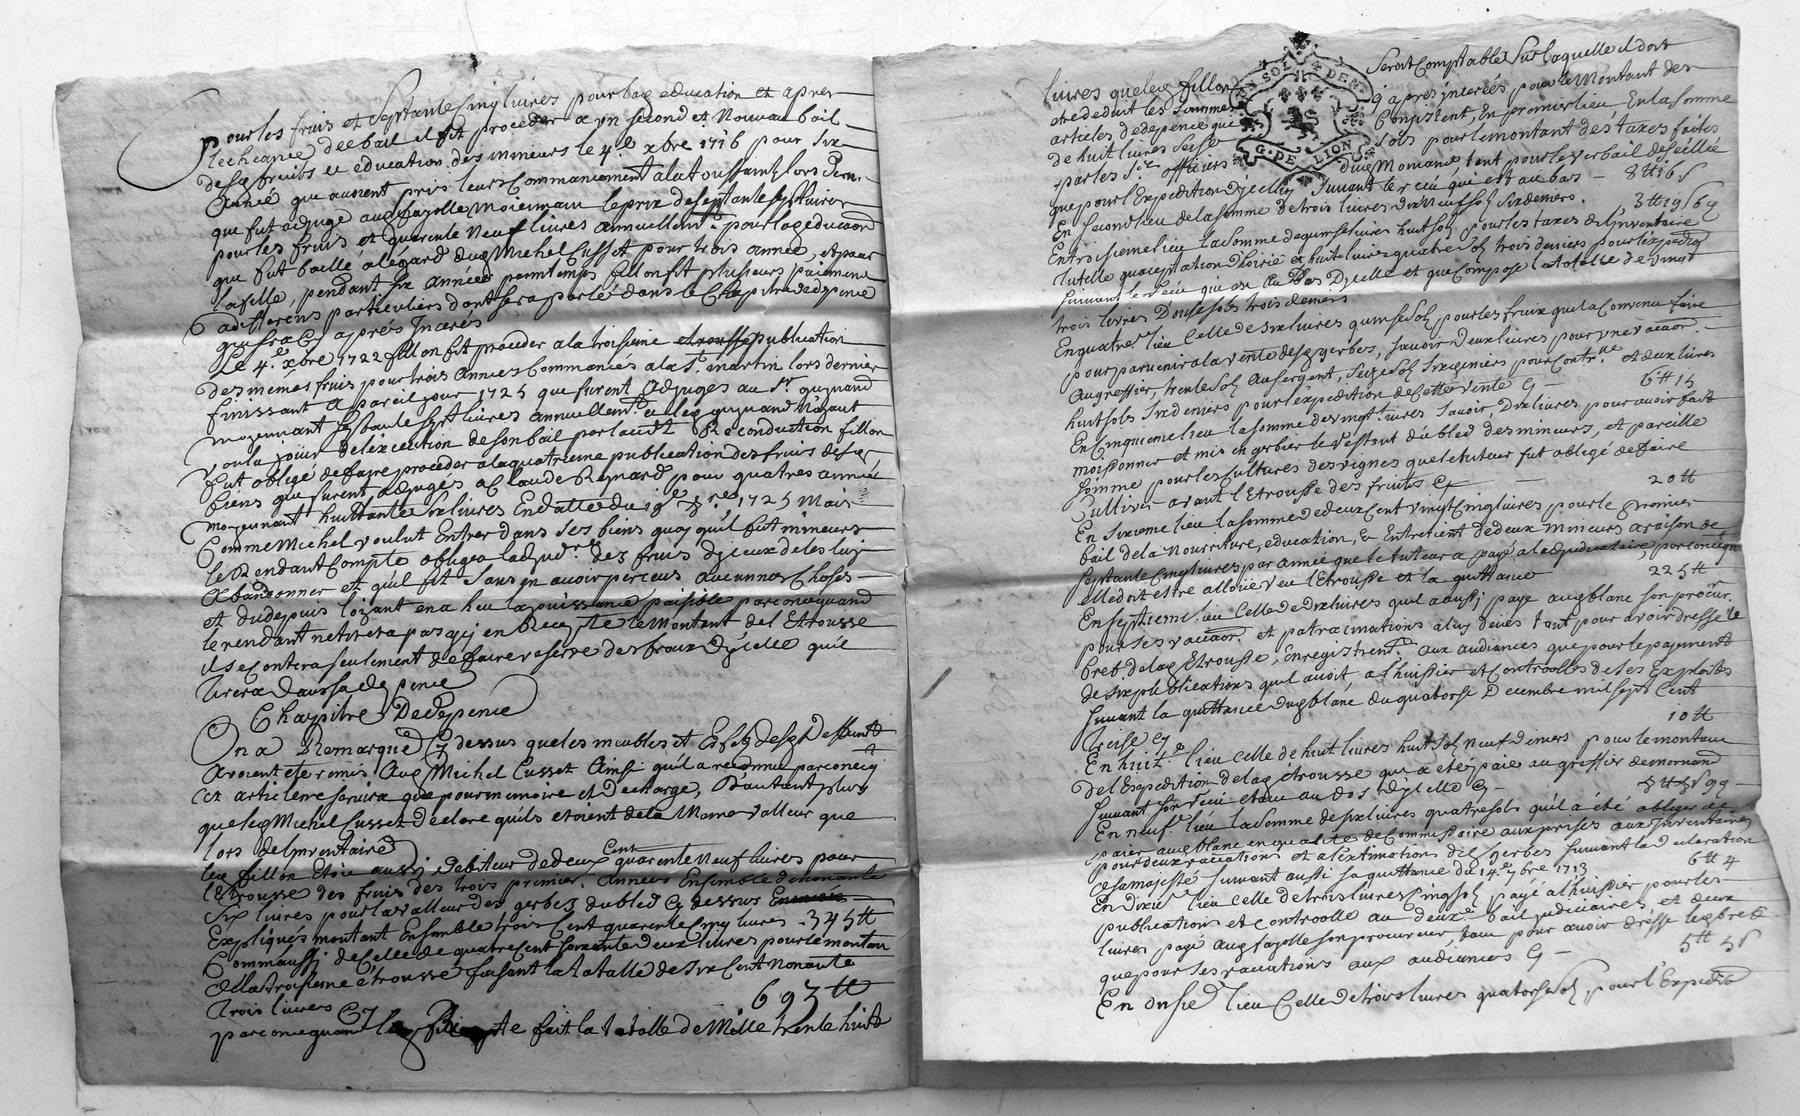 pour les fruis et septante Cinq livres pour lag education et apres
lecheance dee bail il fit proceder a un second et Nouveau bail
desg fruits et education des mineurs le 4.e xbre 1716 pour six
année que auoient pris leurs Commancement alatoussaint lors Dern.
que fut adjugé aug fayolle moienant le prix de septante sept livres
pour les fruis et quarente Neuf livres annuellem.t pour lag educaon
que fut baillé alegard dug Michel Cusset pour trois année, et pour
lafille, pendant six année pemntemps fillon fit plusieurs paiemens
a differens particuliers dont sera parlé dans le Chapitre dedepence
qui sra Cy apres Inserés
Le 4.e xbre 1722 fillon fit proceder a la troisieme etrousse publication
des memes fruis pour trois années Commancées ala St. martin lors dernier
finissant a pareil jour 1725 que furent adjuges au Sr. guynand
moyennant septante sept livres annuellem.t et leg guynand N'ayant
voulu joüir del'execution de son bail par tacitt Reconduction fillon
fut obligé de faire proceder a la quatrieme publication des fruis desg
biens que furent adjugés a Claude Reynard pour quatres année
moyennant huittante six livres En datte du 19.e 8bre 1725 Mais
Comme Michel voulut Entrer dans ses biens quoy qu'il fut mineurs
le Rendant Compte obligea ladjud.re des fruis d'yceux de les luy
abandonner et qu'il fit sans en avoir perceus aucunnes Choses
et dudepuis loyant en a heu la jouissance paisible par consequand
le rendant ne tirera pas cy en Recepte le Montant de l'Etrousse
il se contera seulement de faire reserve des fraix d'ycelle qu'il
tirera dans sa depence
Chapitre Dedepence
On a Remarqué Cy dessus que les meubles et Effets desg deffunts
avoient ete remis Aug Michel Cusset Ainsi qu'il a reconnu par conseq
cet article ne servira que pour memoire et decharge, D'autant plus
que leg Michel Cusset declare qu'ils etoient de la Meme valleur que
lors de l'inventaire
leg fillon Etoit aussi debiteur de deux Cent quarente neuf livres pour
l'etrousse des fruis des trois premier. années Ensemble de nonante
six livres pour la valleur des gerbes du bled cy dessus
Expliqués montant Ensemble trois Cent quarente Cinq livres - 345 ₶
Comm aussi de Celle de quatre Cent soixante deux livres pour le montan
de la troisieme etrousse faisant la totalle de six Cent nonante
trois livres Cy
693 ₶
par consequand la Recepte fait la totalle de Mille trente huit
GN SOL 4 DEN.
G. DE LION
livres que leg fillon seroit Comptable Sur laquelle il doit
etre deduit les sommes cy apres inserées pour le Montant des
articles dedepence qui Consistent, En premier lieu En la somme
de huit livres seise sols pour le montant des taxes faites
par les Srs. officiers dug Mornand, tant pour le verbail de scellée
que pour l'Expedition dycelluy suivant le receu qui est au bas - 8 ₶ 16 s
En second lieu de la somme de trois livres dix Neuf sols six deniers. 3 ₶ 19 s 6 d
En troisieme lieu la somme de quinse livres huit sols pour les taxes de l'inventaire
tutelle quaceptation d'loirie et huit livres quatre sols trois deniers pour l'expedion
suivant le receu qui est au bas D'ycelle et que Compose la totalle de vingt
trois livres Dousesols trois deniers
En quatre. lieu Celle de six livres quinse sols pour les fraix qu'il a Convenu faire
pour parvenir a la vente desg gerbes, savoir deux livres pour une vacaon.
Au greffier, trente sols Au sergent, seize sols six deniers pour Contr.lle et deux livres
huit sols six deniers pour l'expedition de cette vente Cy - 6 ₶ 15
En Cinquieme lieu la somme de vingt livres savoir, Dix livres pour avoir fait
moissonner et mis en gerbier le restant du bled des mineurs, et pareille
somme pour les Cultures des vignes que le tuteur fut obligé de faire
Cultiver avant l'Etrousse des fruits Cy - 20 ₶
En sixieme lieu la somme de deux cent vingt Cinq livres pour le premier
bail de la Nourriture, education, & Entretient de deux mineurs a raison de
septante Cinq livres par année que le tuteur a payé al'adjudicataire, par conseq
elle doit estre alloüée veu l'Etrousse et la quittance 225 ₶
En septieme. lieu Celle de dix livres qu'il a aussi payé aug blanc son procur.r
pour ses vacaon. et patrocinations a luy deües tant pour avoir dressé le
bref delag Etrousse, Enregistrem.t aux audiances que pour le payement
de six publications qu'il avoit, a l'huissier et Controolle de ses Exploits
suivant la quittance dug blanc du quatorse Decembre mil sept Cent
treise Cy 10 ₶
En huit.e lieu celle de huit livres huit sols neuf deniers pour le montant
del'Expedition delag etrousse qui a eté paié au greffier de mornand
suivant son receu etant au dos d'ycelle Cy - 8 ₶ 8 s 9 d
En neuf.e lieu la somme de six livres quatre sols qu'il a été obliger de
paier aug blanc en qualité de Commissaire aux prises aux inventaires
pour deux vacations et a l'extimation des gerbes suivant la declaration
de sa majesté suivant aussi sa quittance du 14.e 7bre 1713 6 ₶ 4
En Dixie. lieu celle de trois livres Cinq sols payé a l'huissier pour les
publications et controolle au deux.e bail judiciaires, et deux
livres payé aug fayolle son procureur, tant pour avoir dressé leg bref
que pour ses vacations aux audiances Cy - 5 ₶ 5 s
En onsie. lieu Celle de trois livres quatorse sols, pour l'Expedition